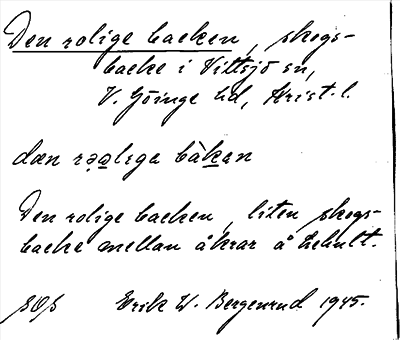 Den rolige backen, skogs-
backe i Vittsjö sn,
V. Göinge hd, Krist. l.
dæn rǝalega bàkan
Den rolige backen, liten skogs-
backe mellan åkrar å Lehult.
Erik W. Bergenrud 1945.